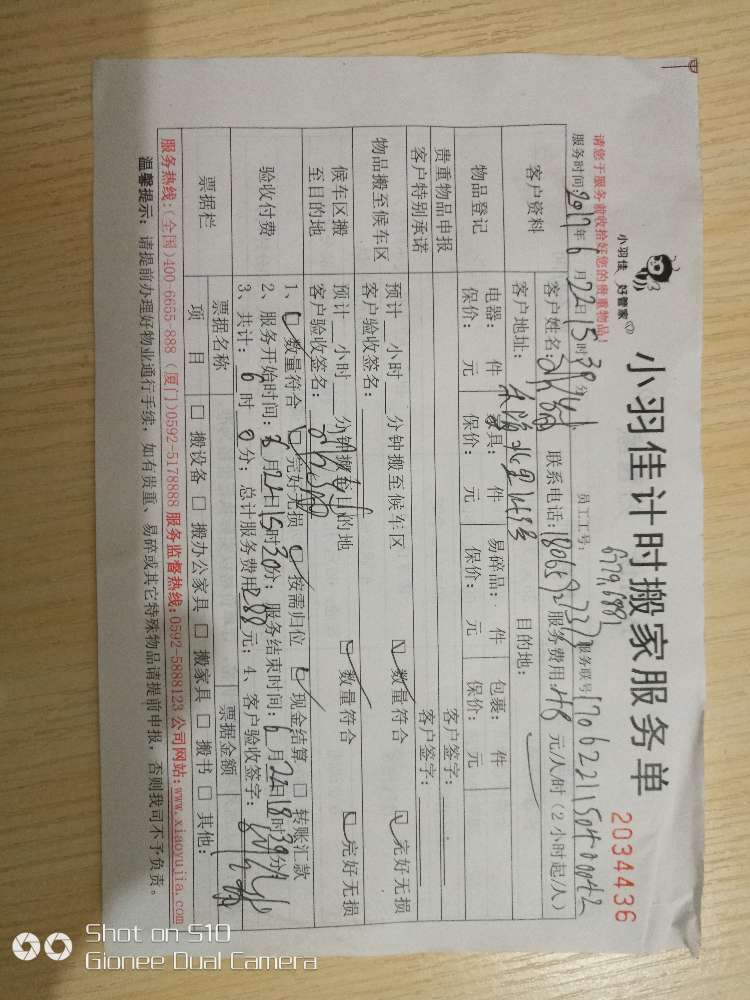 小羽佳 好管家
小羽佳计时搬家服务单
2034436
请您于服务前收拾好您的贵重物品!
员工工号: 679,6881
服务时间: 2017年6月22日15时30分
服务联号: 17062211504000042
客户资料
客户姓名: 联系电话: 服务费用: 48 元/人/时(2小时起/人)
客户地址: 目的地:
物品登记
电器: 件 家具: 件 易碎品: 件 包裹: 件
保价: 元 保价: 元 保价: 元 保价: 元
贵重物品申报 客户签字:
客户特别承诺 客户签字:
物品搬至候车区
预计 小时 分钟搬至候车区 数量符合 完好无损
客户验收签名:
候车区搬至目的地
预计 小时 分钟搬至目的地 数量符合 完好无损
客户验收签名:
验收付费
1、 数量符合 完好无损 按需归位 现金结算 □ 转账汇款
2、服务开始时间: 6月22日15时30分; 服务结束时间: 6月22日18时30分
3、共计: 6 时 0 分; 总计服务费用 288 元; 4、客户验收签字:
票据栏
票据名称 票据金额
项 目 □ 搬设备 □ 搬办公家具 □ 搬家具 □ 搬书 □ 其他:
服务热线:(全国)400-6655-888 (厦门)0592-5178888 服务监督热线:0592-5888123 公司网站:www.xiaoyujia.com
温馨提示: 请提前办理好物业通行手续, 如有贵重、易碎或其它特殊物品请提前申报, 否则我司不予负责。
Shot on S10
Gionee Dual Camera